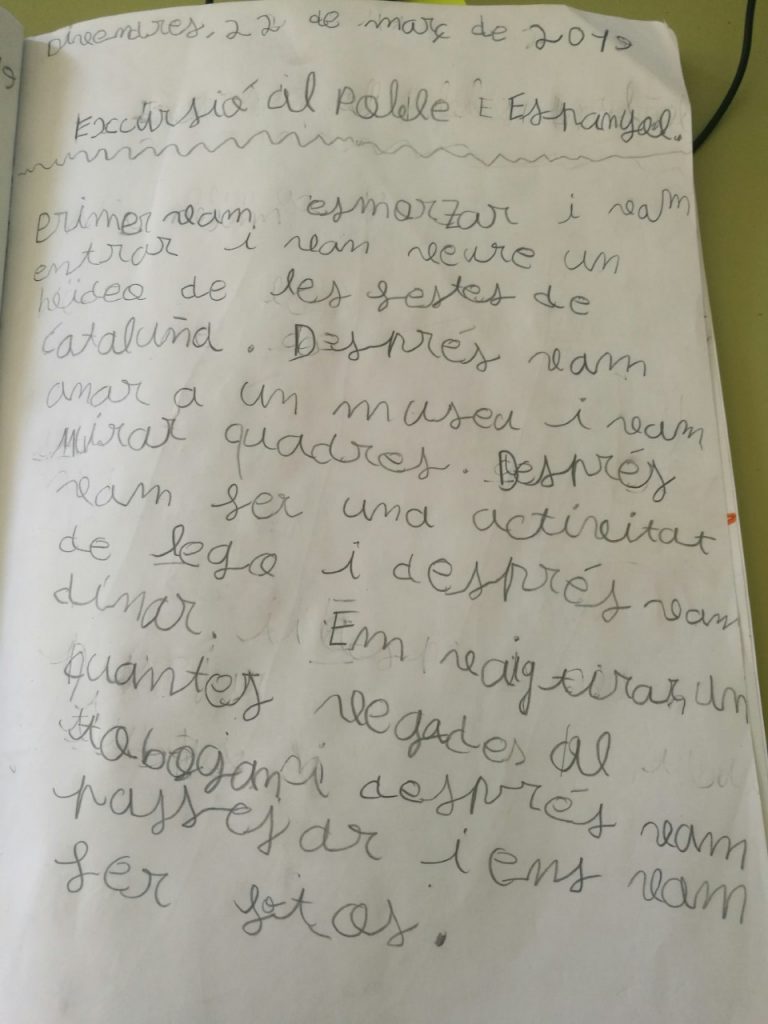 Divendres, 22 de març de 2019
Excursió al Poble E Espanyol.
Primer vam esmorzar i vam
entrar i van veure un
heideo de les festes de
Cataluña. Després vam
anar a un museu i vam
mirar quadres. Després
vam fer una activitat
de lego i després vam
dinar. Em vaig tirar un
quantes vegades al
tobogan i després vam
passejar i ens vam
fer fotos.